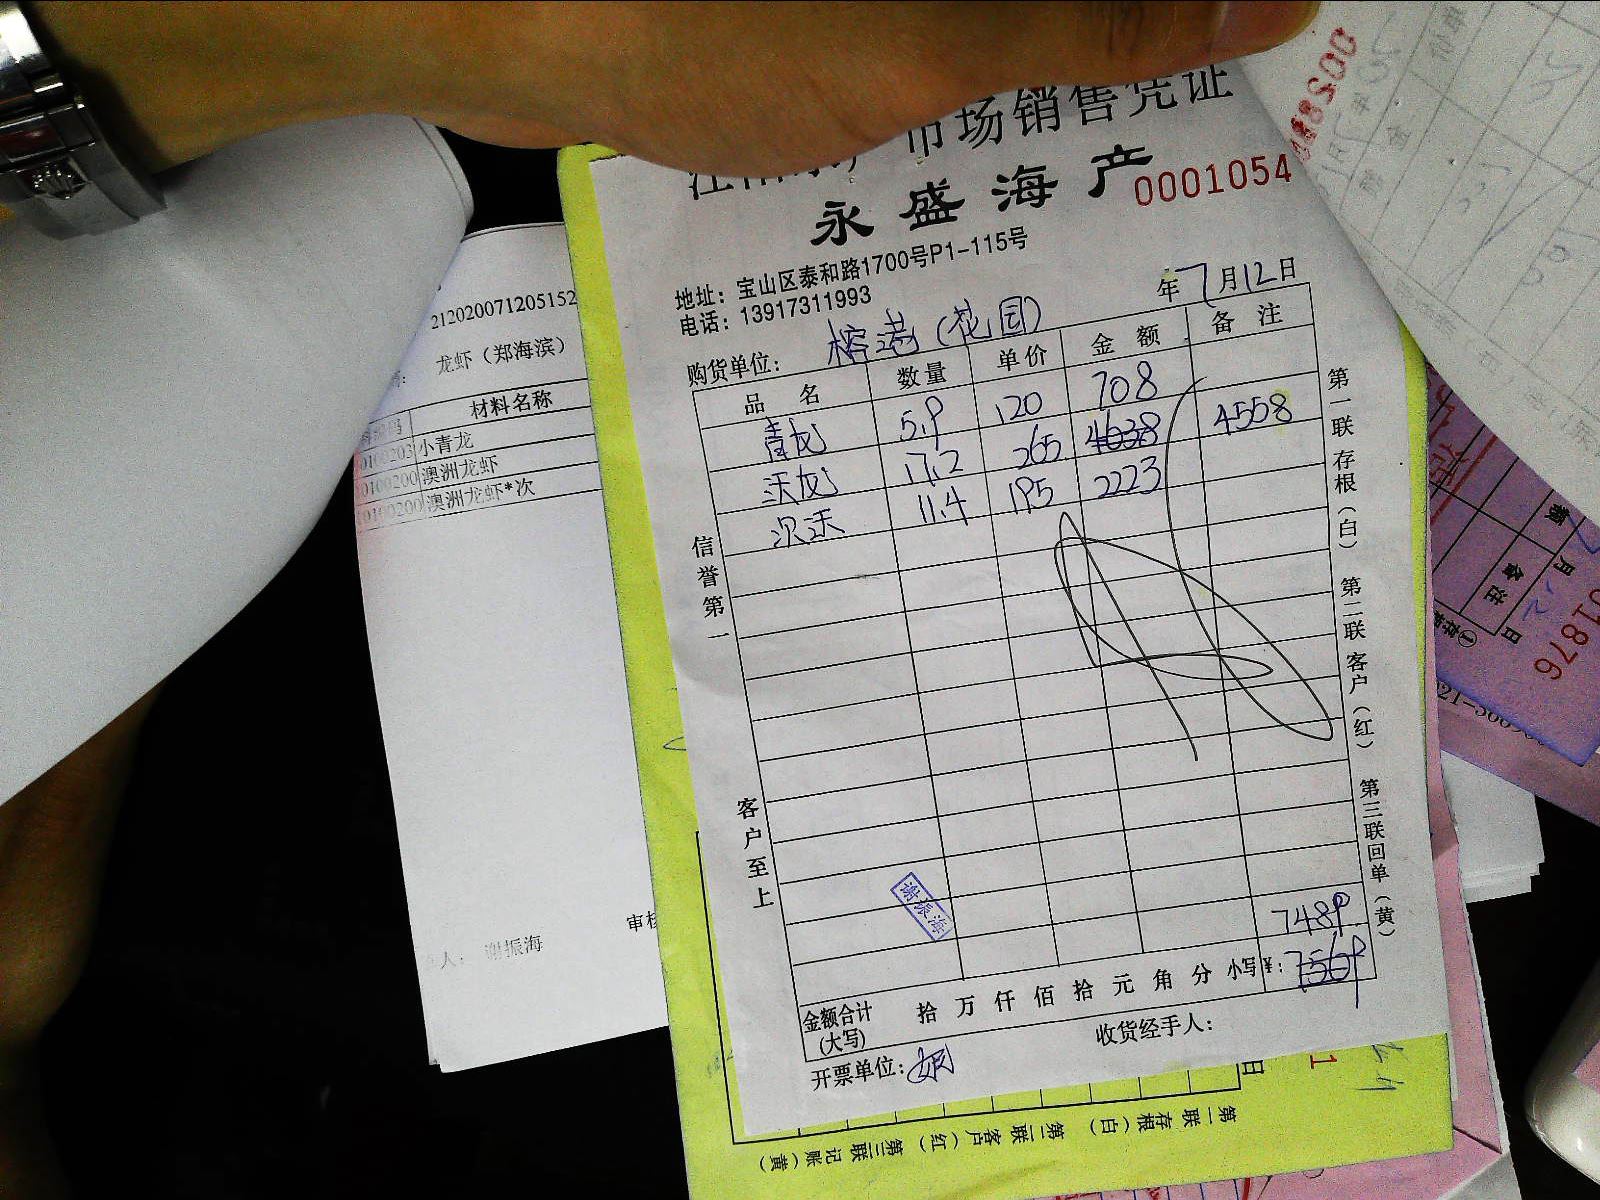 市场销售凭证
永盛海产
0001054
地址：宝山区泰和路1700号P1-115号
电话：13917311993
年7月12日
购货单位：榕港(花园)
品名 数量 单价 金额 备注
青龙 5.9 120 708
沃龙 17.2 265 4638 4558
次沃 11.4 195 2223
信誉第一
客户至上
第一联存根(白) 第二联客户(红) 第三联回单(黄)
谢振海
7489
金额合计(大写) 拾 万 仟 佰 拾 元 角 分 小写¥: 7569
收货经手人：
开票单位：
212020071205152
龙虾（郑海滨）
材料名称
0100203 小青龙
0100200 澳洲龙虾
0100200 澳洲龙虾*次
审核
人： 谢振海
第一联存根(白) 第二联客户(红) 第三联记账(黄)
日
00288
额 备注
月 日
01876